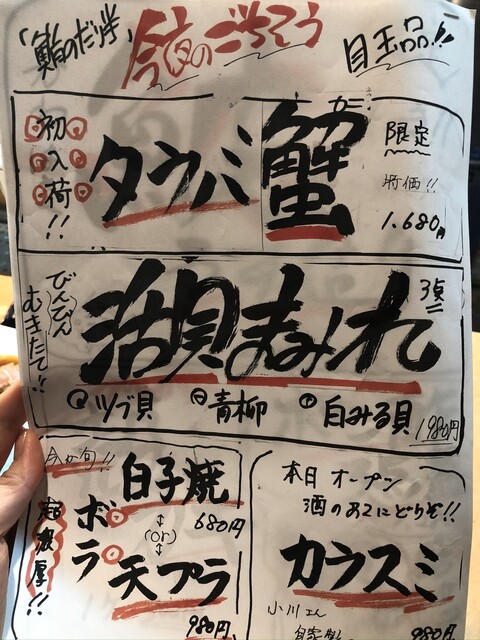 今夜のごちそう
目玉品!!
初入荷!!
タラバ蟹
カニ
限定
特価!!
1.680円
びんびん
むきたて!!
活貝まみれ
3貝
ツブ貝
青柳
白みる貝
1980円
今が旬!!
超濃厚!!
ボラ
白子焼
680円
(or)
天プラ
980円
本日オープン
酒のあてにどうぞ!!
カラスミ
自家製
980円